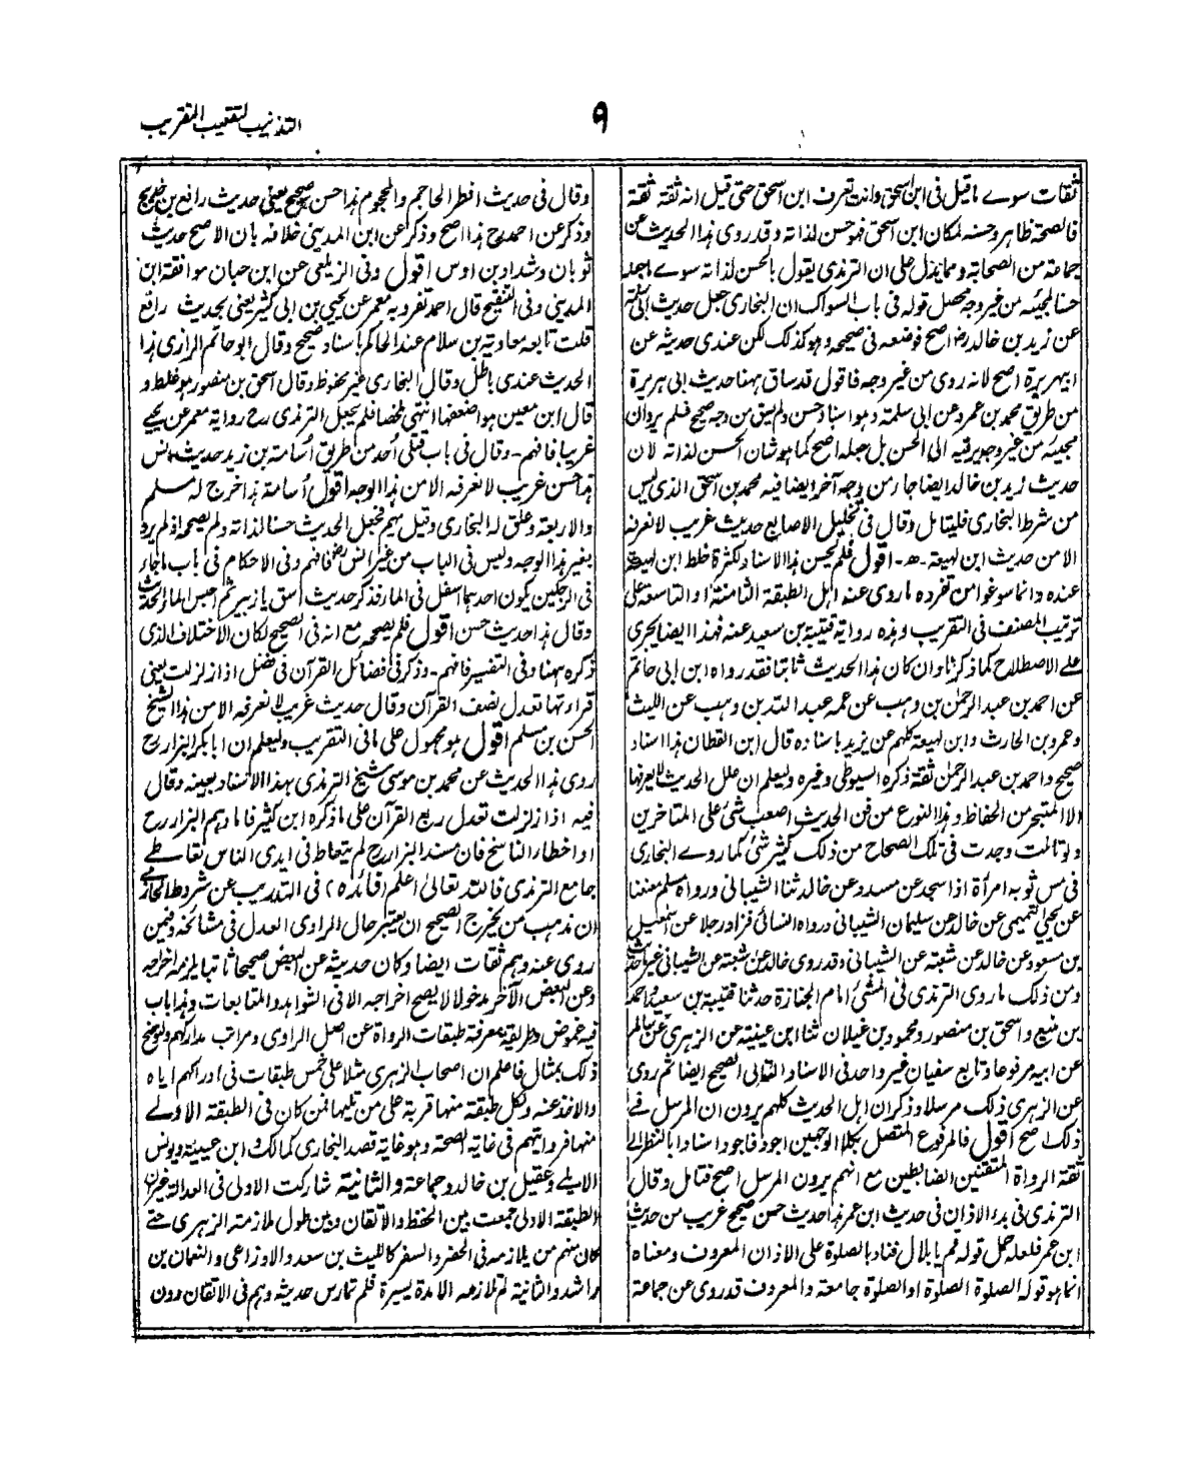 التذنيب لتعقيب التقريب
٩
ثقات سوے ما قيل فى ابن اسحق وانت تعرف ابن اسحق حتى قيل انه ثقة ثقة ثقة
فالصحة ظاهر وحسنه لمكان ابن اسحق فهو حسن لذاته وقد روى هذا الحديث عن
جماعة من الصحابة ومما يدل على ان الترمذى يقول بالحسن لذاته سوے ما جعله
حسنا لمجيئه من غير وجه محصل قوله فى باب السواك ان البخارى جعل حديث ابى سلمة
عن زيد بن خالد رضـ اصح فوضعه فى صحيحه وهو كذلك لكن عندى حديثه عن
ابيهريرة اصح لانه روى من غير وجه فاقول قد ساق ههنا حديث ابى هريرة
من طريق محمد بن عمرو عن ابى سلمة وهو اسناد حسن ولم يبق من وجه صحيح فلم يرد ان
مجيئه من غير وجه يرقيه الى الحسن بل جعله اصح كما هو شان الحسن لذاته لان
حديث زيد بن خالد ايضا جاء من وجه آخر ايضا فيه محمد بن اسحق الذى ليس
من شرط البخارى فليتامل وقال فى تخليل الاصابع حديث غريب لا نعرفه
الا من حديث ابن لهيعة ـ هـ ـ اقول فلم يحسن هذا الاسناد لكثرة خلط ابن لهيعة
عنده وانما سوغوا من تفرده ما روى عنه اهل الطبقة الثامنة او التاسعة على
ترتيب المصنف فى التقريب وهذه رواية قتيبة بن سعيد عنه فهذا ايضا يجرى
على الاصطلاح كما ذكرنا وان كان هذا الحديث ثابتا فقد رواه ابن ابى حاتم
عن احمد بن عبد الرحمٰن بن وهب عن عمه عبد الله بن وهب عن الليث
وعمرو بن الحارث وابن لهيعة كلهم عن يزيد باسناده قال ابن القطان هذا اسناد
صحيح واحمد بن عبد الرحمٰن ثقة ذكره السيوطى وغيره وليعلم ان علل الحديث لا يعرفها
الا المتبحر من الحفاظ وهذا النوع من فن الحديث اصعب شئ على المتاخرين
ولو تاملت وجدت فى تلك الصحاح من ذلك كثير شئ كما روے البخارى
فى مس ثوبه امرأة اذا سجد عن مسدد عن خالد ثنا الشيبانى ورواه مسلم معنعنا
عن يحيى التميمى عن خالد عن سليمان الشيبانى ورواه النسائى فزاد رجلا عن اسمٰعيل
بن مسعود عن خالد عن شعبة عن الشيبانى وقد روى خالد عن شعبة عن الشيبانى غير حديث
ومن ذلك ما روى الترمذى فى المشئ امام الجنازة حدثنا قتيبة بن سعيد واحمد
بن منيع واسحق بن منصور ومحمود بن غيلان ثنا ابن عيينة عن الزهرى عن سالم
عن ابيه مرفوعا وتابع سفيان غير واحد فى الاسناد والتالى الصحيح ايضا ثم روى
عن الزهرى ذلك مرسلا وذكر ان اهل الحديث كلهم يرون ان المرسل فى
ذلك اصح اقول فالمرفوع المتصل بكلا الوجهين اجود فاجود اسنادا بالنظر الى
ثقة الرواة المتقنين الضابطين مع انهم يرون المرسل اصح فتامل وقال
الترمذى فى بدء الاذان فى حديث ابن عمر هذا حديث حسن صحيح غريب من حديث
ابن عمر فلعله حمل قوله قم يا بلال فناد بالصلوة على الاذان المعروف ومعناه
انما هو قوله الصلوة الصلوة او الصلوة جامعة والمعروف قد روى عن جماعة
وقال فى حديث افطر الحاجم والمحجوم هذا حسن صحيح يعنى حديث رافع بن خديج
وذكر عن احمد رح هذا اصح وذكر عن ابن المدينى خلافه بان الاصح حديث
ثوبان وشداد بن اوس اقول وفى الزيلعى عن ابن حبان موافقة ابن
المدينى وفى التنقيح قال احمد تفرد به معمر عن يحيى بن ابى كثير يعنى بحديث رافع
قلت تابعه معاوية بن سلام عند الحاكم باسناد صحيح وقال ابو حاتم الرازى هذا
الحديث عندى باطل وقال البخارى غير محفوظ وقال اسحق بن منصور هو غلط و
قال ابن معين هو اضعفها انتهى ملخصا فلم يجعل الترمذى رح رواية معمر عن يحيے
غريبا فافهم ـ وقال فى باب قتلى أحد من طريق أسامة بن زيد حديث انس
هذا حسن غريب لا نعرفه الا من هذا الوجه اقول أسامة هذا خرج له مسلم
والاربعة وعلق له البخارى وقيل يهم فجعل الحديث حسنا لذاته ولم يصححه اذ لم يرد
بغير هذا الوجه وليس فى الباب من غير انس رضـ فافهم وفى الاحكام فى باب ما جاء
فى الرجلين يكون احدهما اسفل فى الماء فذكر حديث اسق يا زبير ثم احبس الماء الحديث
وقال هذا حديث حسن اقول فلم يصححه مع انه فى الصحيح لكان الاختلاف الذى
ذكره ههنا وفى التفسير فافهم ـ وذكر فى فضائل القرآن فى فضل اذا زلزلت يعنى
قراءتها تعدل نصف القرآن وقال حديث غريب لا نعرفه الا من هذا الشيخ
الحسن بن مسلم اقول هو مجهول على ما فى التقريب وليعلم ان ابا بكر البزار رح
روى هذا الحديث عن محمد بن موسى شيخ الترمذى بهذا الاسناد بعينه وقال
فيه اذا زلزلت تعدل ربع القرآن على ما ذكره ابن كثير فاما وهم البزار رح
او اخطار الناسخ فان مسند البزار رح لم يتعاط فى ايدى الناس تعاطے
جامع الترمذى فالله تعالى اعلم (فائده) فى التدريب عن شروط الحازمى
ان مذهب من يخرج الصحيح ان يعتبر حال الراوى العدل فى مشائخه وفيمن
روى عنه وهم ثقات ايضا وكان حديثه عن البعض صحيحا ثابتا يلزمه اخراجه
وعن البعض الآخر مدخولا لا يصح اخراجه الا فى الشواهد والمتابعات وهذا باب
فيه غموض وطريقه معرفة طبقات الرواة عن اصل الراوى ومراتب مداركهم ولنوضح
ذلك بمثال فاعلم ان اصحاب الزهرى مثلا على خمس طبقات فى ادراكهم اياه
والاخذ عنه ولكل طبقة منها قرية على من تليها فمن كان فى الطبقة الاولے
منها فروايتهم فى غاية الصحة وهو غاية قصد البخارى كمالك وابن عيينة ويونس
الايلے وعقيل بن خالد وجماعة والثانية شاركت الاولى فى العدالة غير ان
الطبقة الاولى جمعت بين الحفظ والاتقان وبين طول ملازمته الزهرى حتے
كان منهم من يلازمه فى الحضر والسفر كالليث بن سعد والاوزاعى والنعمان بن
راشد والثانية لم تلازمه الا مدة يسيرة فلم تمارس حديثه وهم فى الاتقان دون